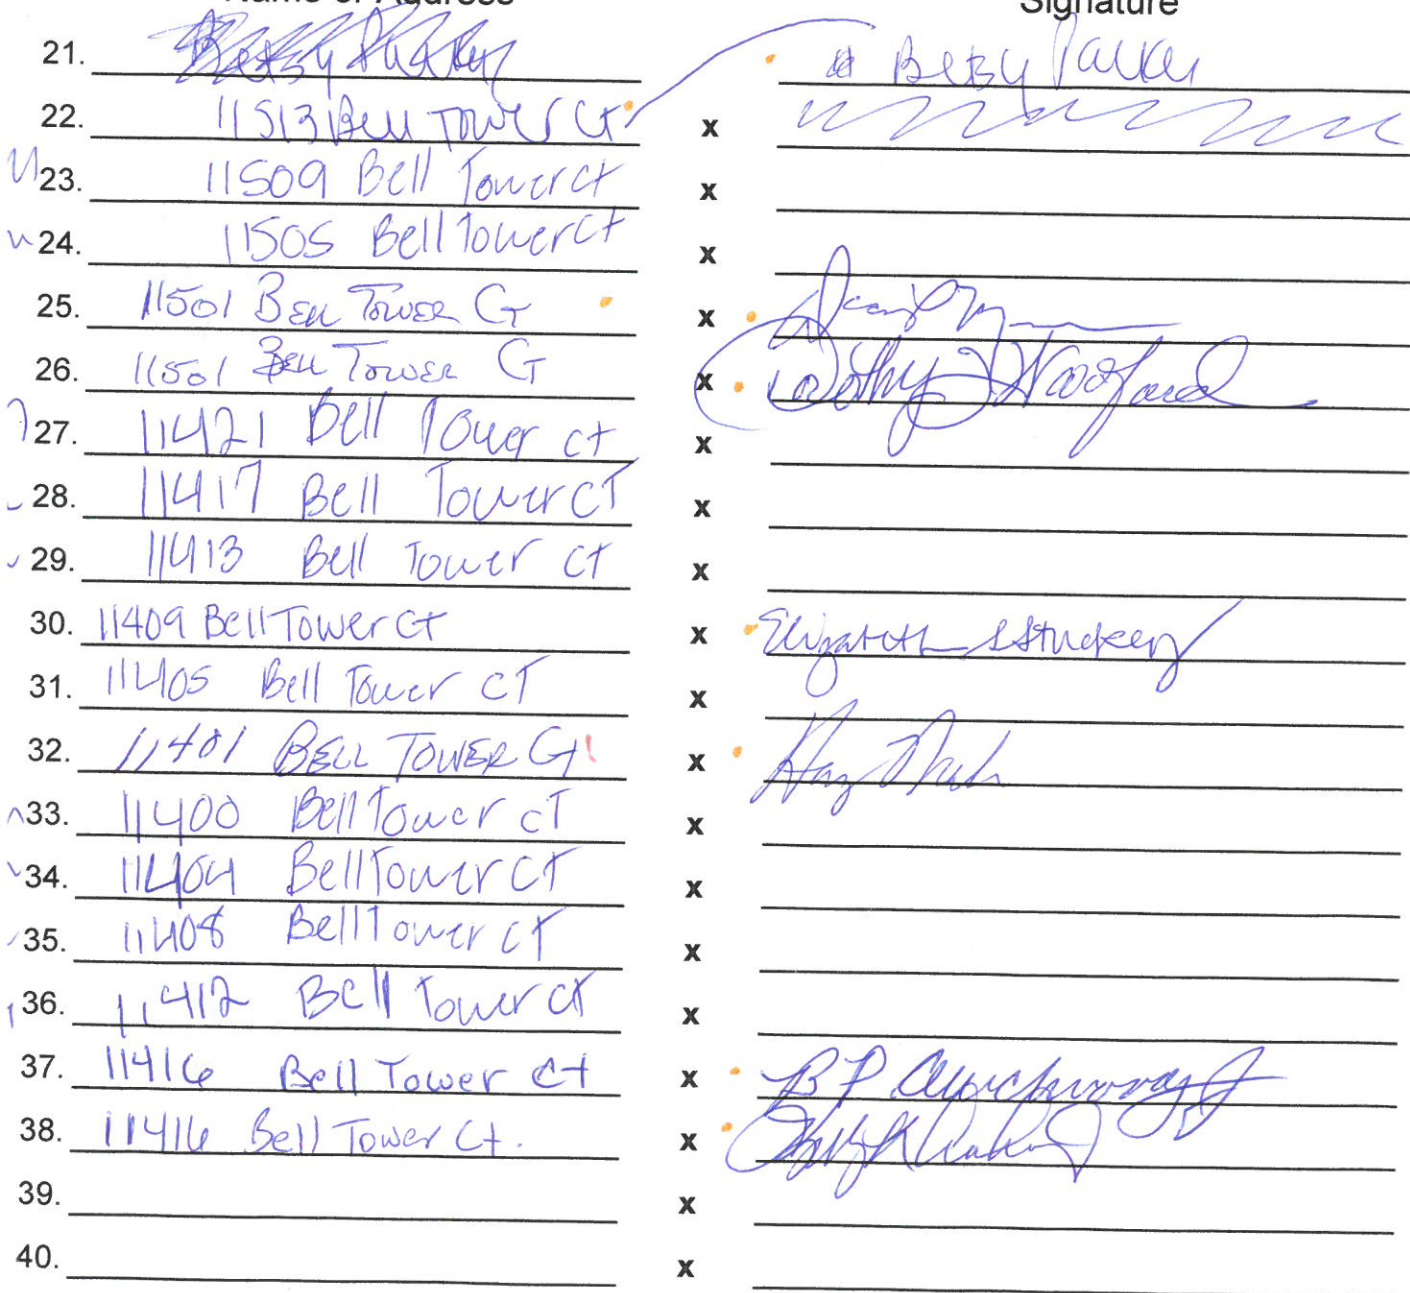 Name or Address Signature
21. Betsy Parker Betsy Parker
22. 11513 Bell Tower Ct x
23. 11509 Bell Tower ct x
24. 11505 Bell Tower ct x
25. 11501 BELL TOWER CT x
26. 11501 BELL TOWER CT x Dorothy J Warford
27. 11421 Bell Tower ct x
28. 11417 Bell Tower CT x
29. 11413 Bell Tower CT x
30. 11409 Bell Tower Ct x Elizabeth S Stuckey
31. 11405 Bell Tower CT x
32. 11401 BELL TOWER CT x
33. 11400 Bell Tower CT x
34. 11404 Bell Tower CT x
35. 11408 Bell Tower CT x
36. 11412 Bell Tower CT x
37. 11416 Bell Tower Ct x B P
38. 11416 Bell Tower Ct. x
39. x
40. x